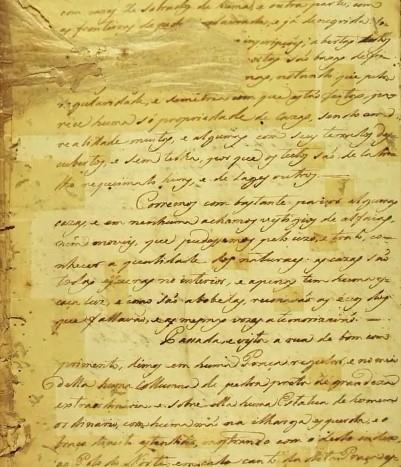 com cazas de sobrados de huma, e outra parte, com
as fronteiras de pedra lavrada, e já denegrida; só
inscripçoẽs, abertas todas
portas são baxas de fei-
nas, notando que pela
regularidade, e semetria com que estão feitas, pare-
rece huma só propriedade de cazas, sendo em
realidade muitas, e algumas com seus terraços des-
cubertos, e sem telha, por que os tectos são de ladri-
lho requeimado huns, e de lages outros.
Corremos com bastante pavor algumas
cazas, e em nenhuma achamos vestigios de alfaias,
nem moveis, que pudessemos pelo uzo, e trato, co-
nhecer a qualidade dos naturaes: as cazas são
todas escuras no interior, e apenas tem huma es-
caça luz, e como são abobedas, resonavão os ecos dos
que fallavão, e as mesmas vozes atemorizavão. —
Passada, e vista a rua de bom com-
primento, démos em huma Praça regular, e no meio
della huma collumna de pedra preta de grandeza
extraordinaria, e sobre ella huma Estatua de homem
ordinario, com huma mão na ilharga esquerda, e o
braço direito estendido, mostrando com o dedo index
ao Polo do Norte; em cada canto da dita Praça es-